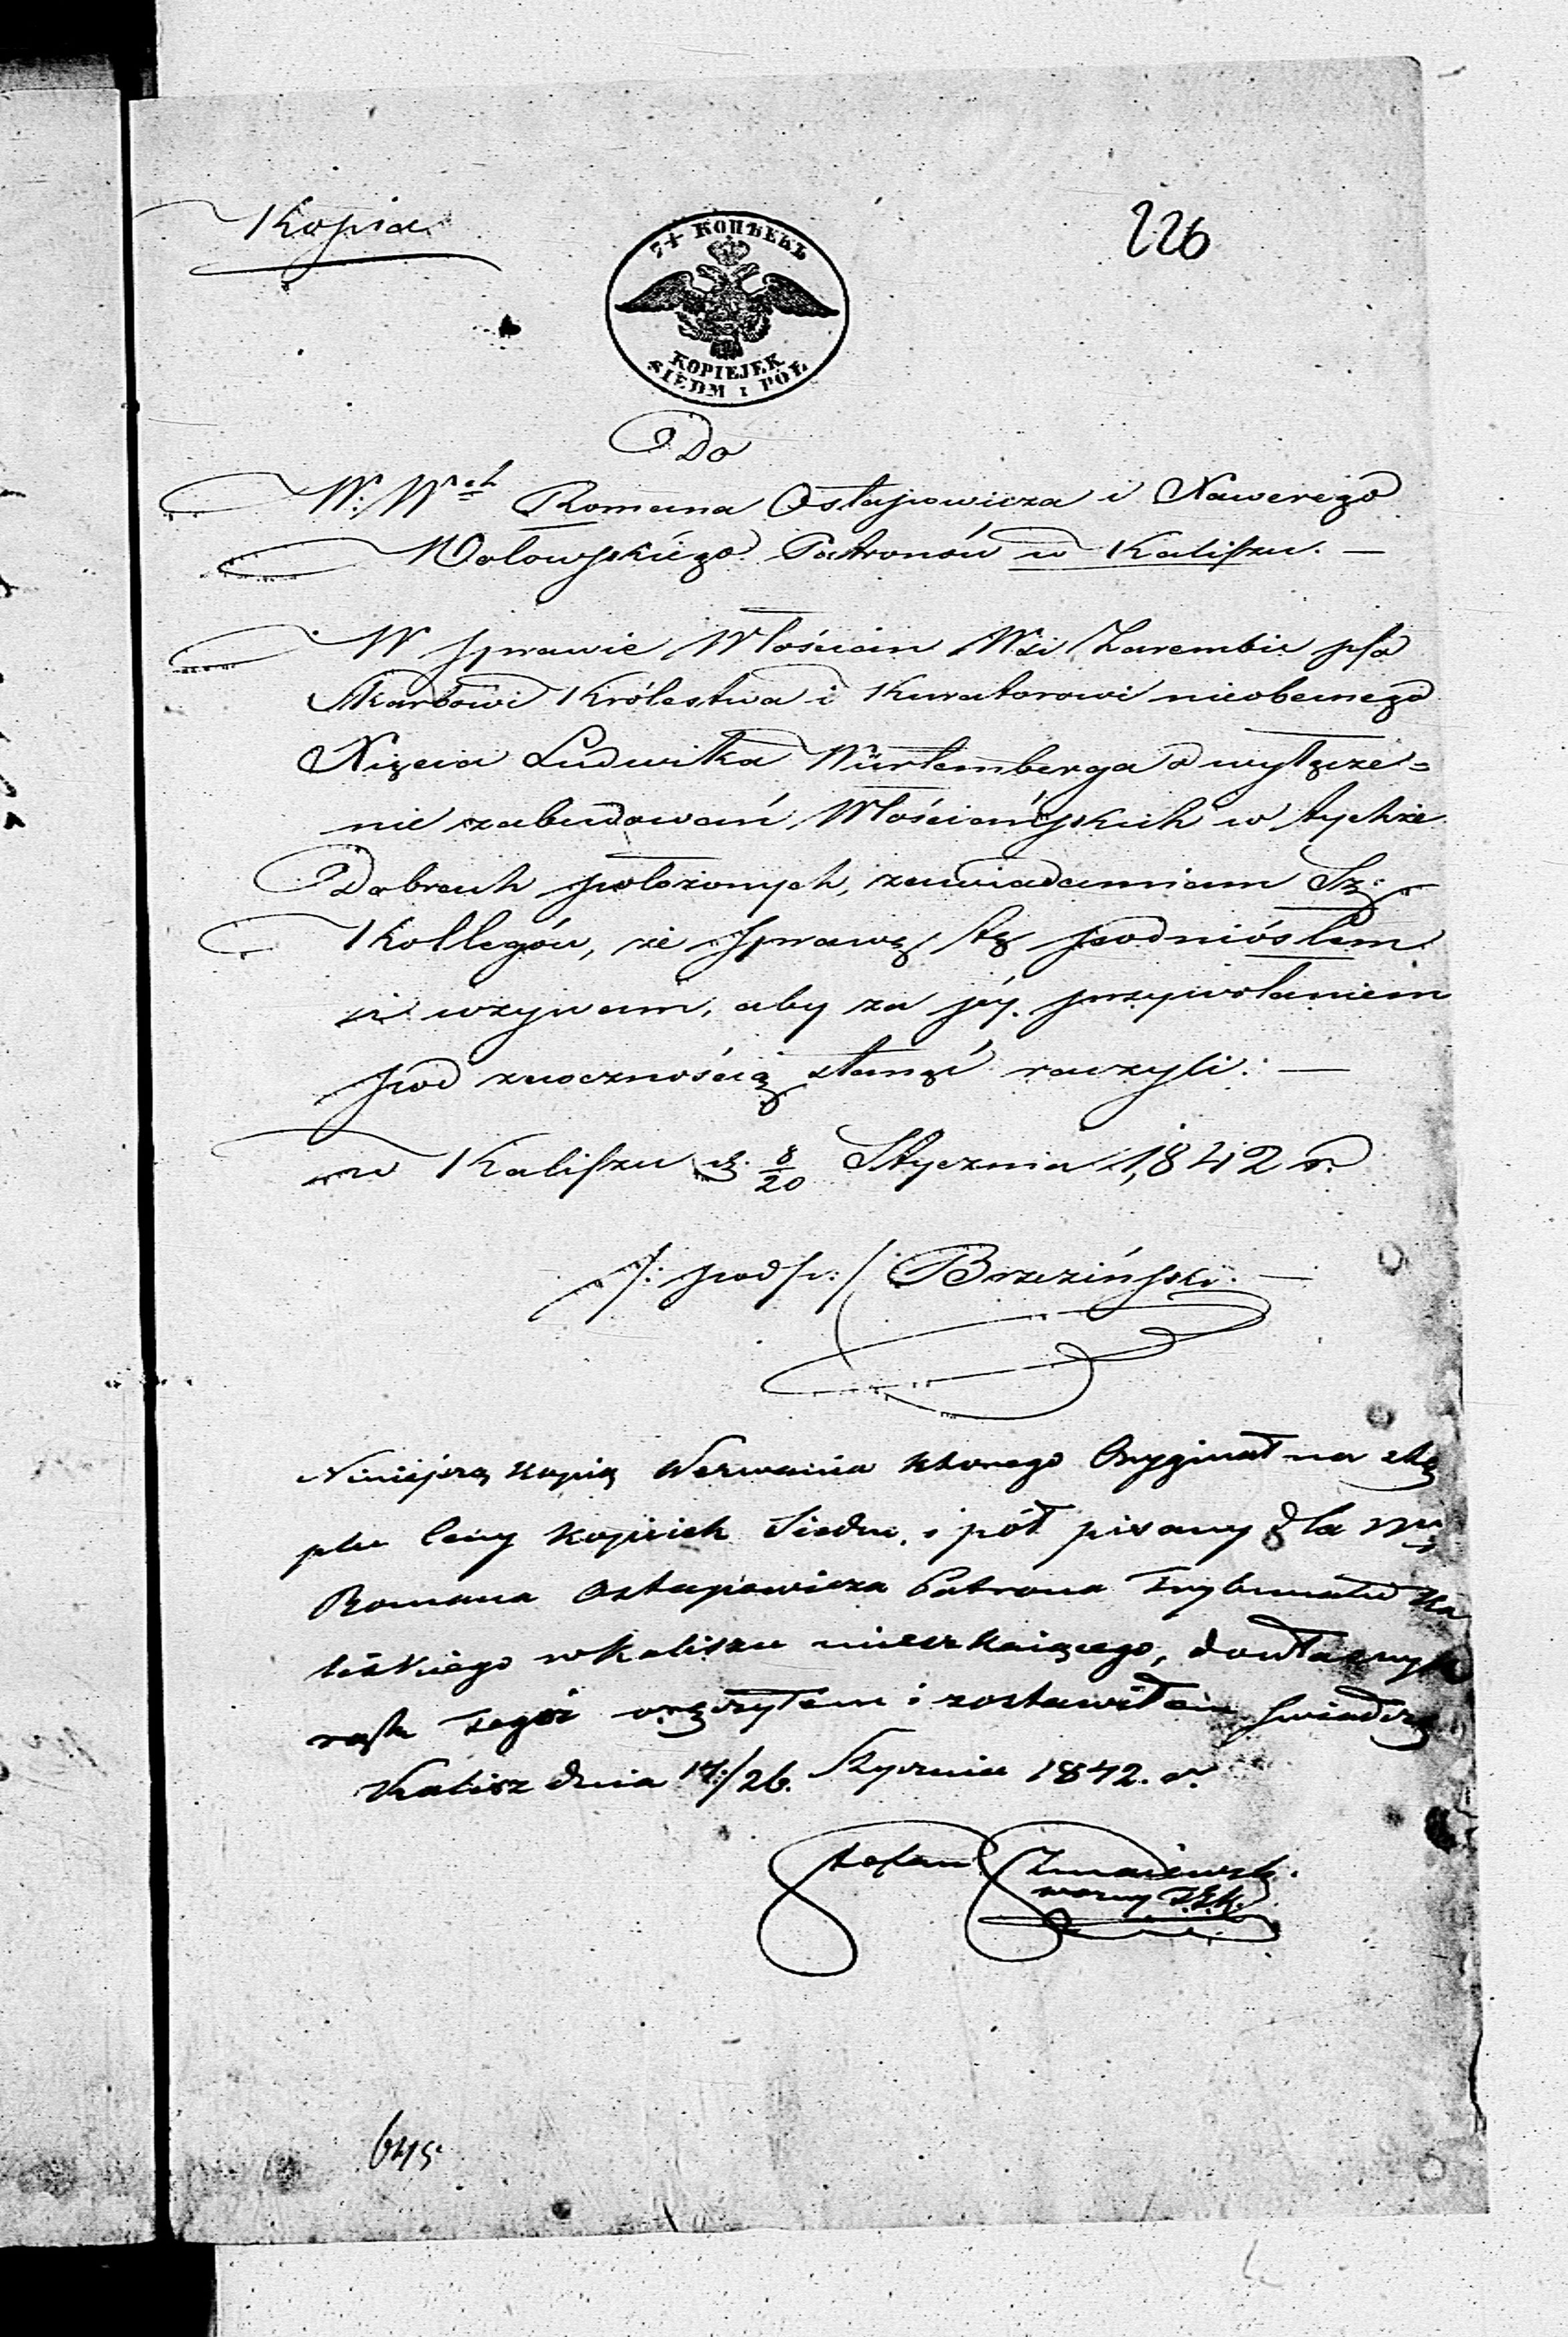 Kopia
226
7½ КОПѢЕКЪ
KOPIEJEK
SIEDM i PÓŁ
Do
W: W<sup>ch</sup> Romana Ostapowicza i Xawerego
Wołowskiego Patronów w Kaliszu. —
W sprawie Włościan Wsi Zarembie p/o
Skarbowi Królestwa i Kuratorowi nieobecnego
Xięcia Ludwika Würtemberga o wyłącze=
nie zabudowań Włościańskich w tychże
Dobrach położonych, zawiadamiam Sz:
Kollegów, że sprawę tę podniósłem
i wzywam, aby za jéj przywołaniem
pod zaocznością stanąć raczyli: —
w Kaliszu d. 8/20 Stycznia 1842 r.
/: podp: / Brzeziński. —
Niniejszą kopią Wezwania którego Oryginał na stę
plu ceny kopiiek Siedm i pół pisany dla
Romana Ostapowicza Patrona Trybunału Ka
liskiego w Kaliszu mieszkaiącego, do własnych
rąk tegoż wręczyłem i zostawiłem świadczę
Kalisz dnia 14/26. Stycznia 1842. r.
Stefan Zmaiewski
wozny T.C.K.
645.